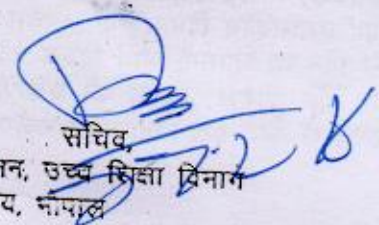 सचिव,
न, उच्च शिक्षा विभाग
य, भोपाल